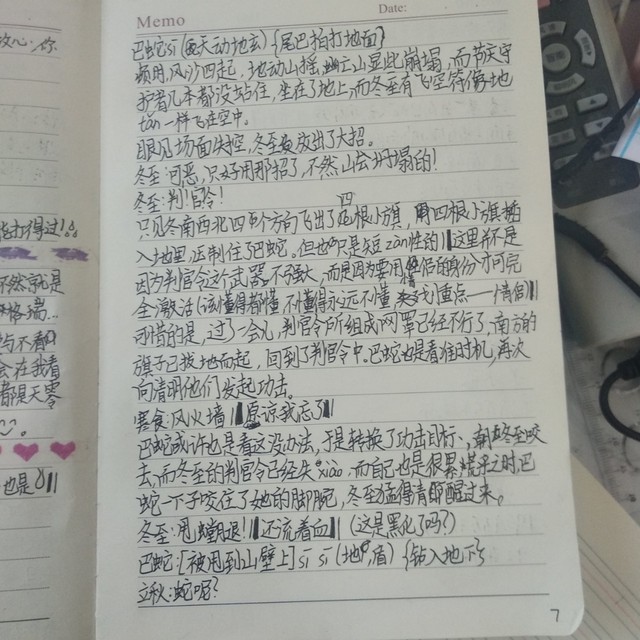 放心.你
能打得过!!
不然就是
网格墙...
与不看
会在我看
都很天零
也是
Memo
Date:
巴蛇:sī(轰天动地去){尾巴拍打地面}
频用,风沙四起,地动山摇,幽云山显此崩塌,而节气守
护者几本都没站住,坐在了地上,而冬至有飞空符像地
tǎn一样飞在空中。
眼见场面失控,冬至发出了大招。
冬至:可恶,只好用那招了,不然山会塌的!
冬至:判官令!
只见冬南西北四个方向飞出了四根小旗,用四根小旗插
入地里,压制住了巴蛇。但也只是短zàn性的 这里并不是
因为判官令这个武器不强大,而是因为要用情侣的身份才可完
全激活(该懂得都懂,不懂得永远不懂 来找重点——情侣
可惜的是,过了一会儿,判官令所组成网罩已经不行了,南方的
旗子已拔地而起,回到了判官令中。巴蛇也是看准时机,再次
向清明他们发起功击。
寒食:风火墙 原谅我忘了
巴蛇或许也是看这没办法,于是转换了功击目标,朝冬至咬
去,而冬至的判官令已经失xiào,而自己也是很累 之时,巴
蛇一下子咬住了她的脚腕,冬至猛得清醒过来。
冬至:甩螳腿! 还流着血 (这是黑化了吗?)
巴蛇:[被甩到山壁上]sī sī(地盾){钻入地下}
立秋:蛇呢?
7